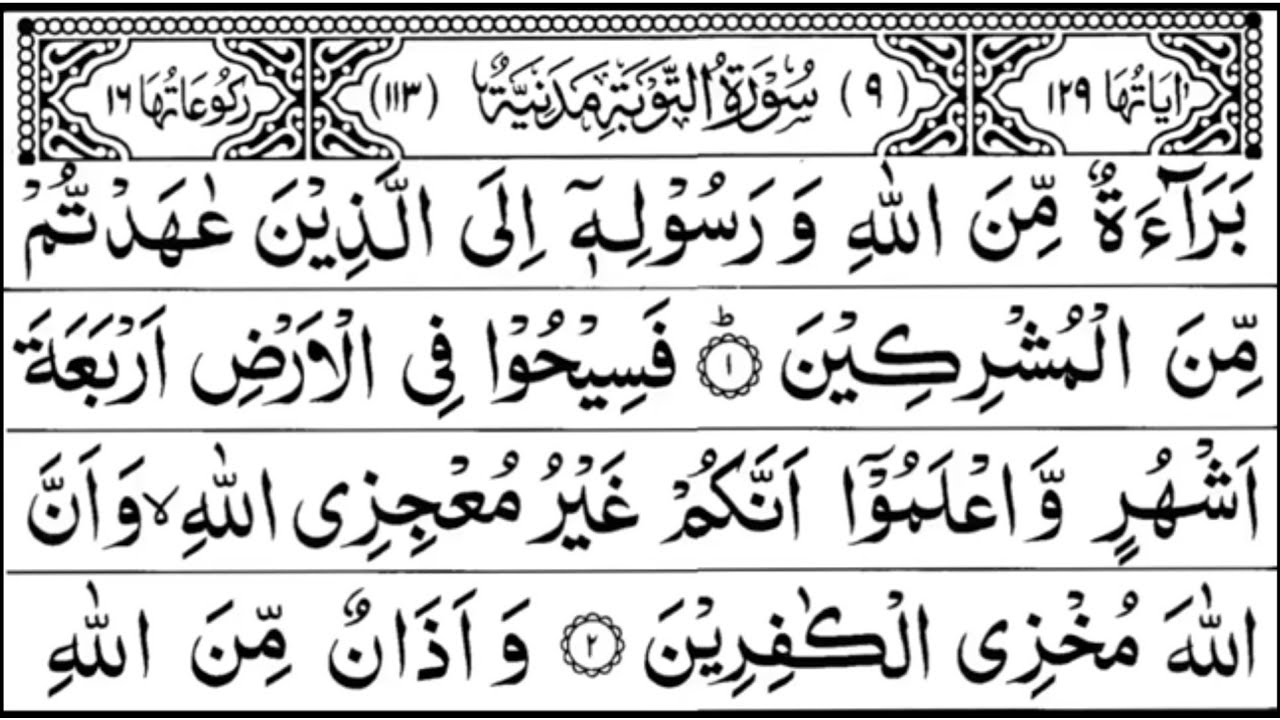 اٰيَاتُهَا ١٢٩ (٩) سُوْرَةُ التَّوْبَةِ مَدَنِيَّةٌ (١١٣) رُكُوْعَاتُهَا ١٦
بَرَآءَةٌ مِّنَ اللّٰهِ وَ رَسُوْلِهٖۤ اِلَى الَّذِيْنَ عٰهَدْتُّمْ
مِّنَ الْمُشْرِكِيْنَ ؕ ﴿١﴾ فَسِيْحُوْا فِى الْاَرْضِ اَرْبَعَةَ
اَشْهُرٍ وَّاعْلَمُوْۤا اَنَّكُمْ غَيْرُ مُعْجِزِى اللّٰهِ ۙ وَاَنَّ
اللّٰهَ مُخْزِى الْكٰفِرِيْنَ ﴿٢﴾ وَ اَذَانٌ مِّنَ اللّٰهِ